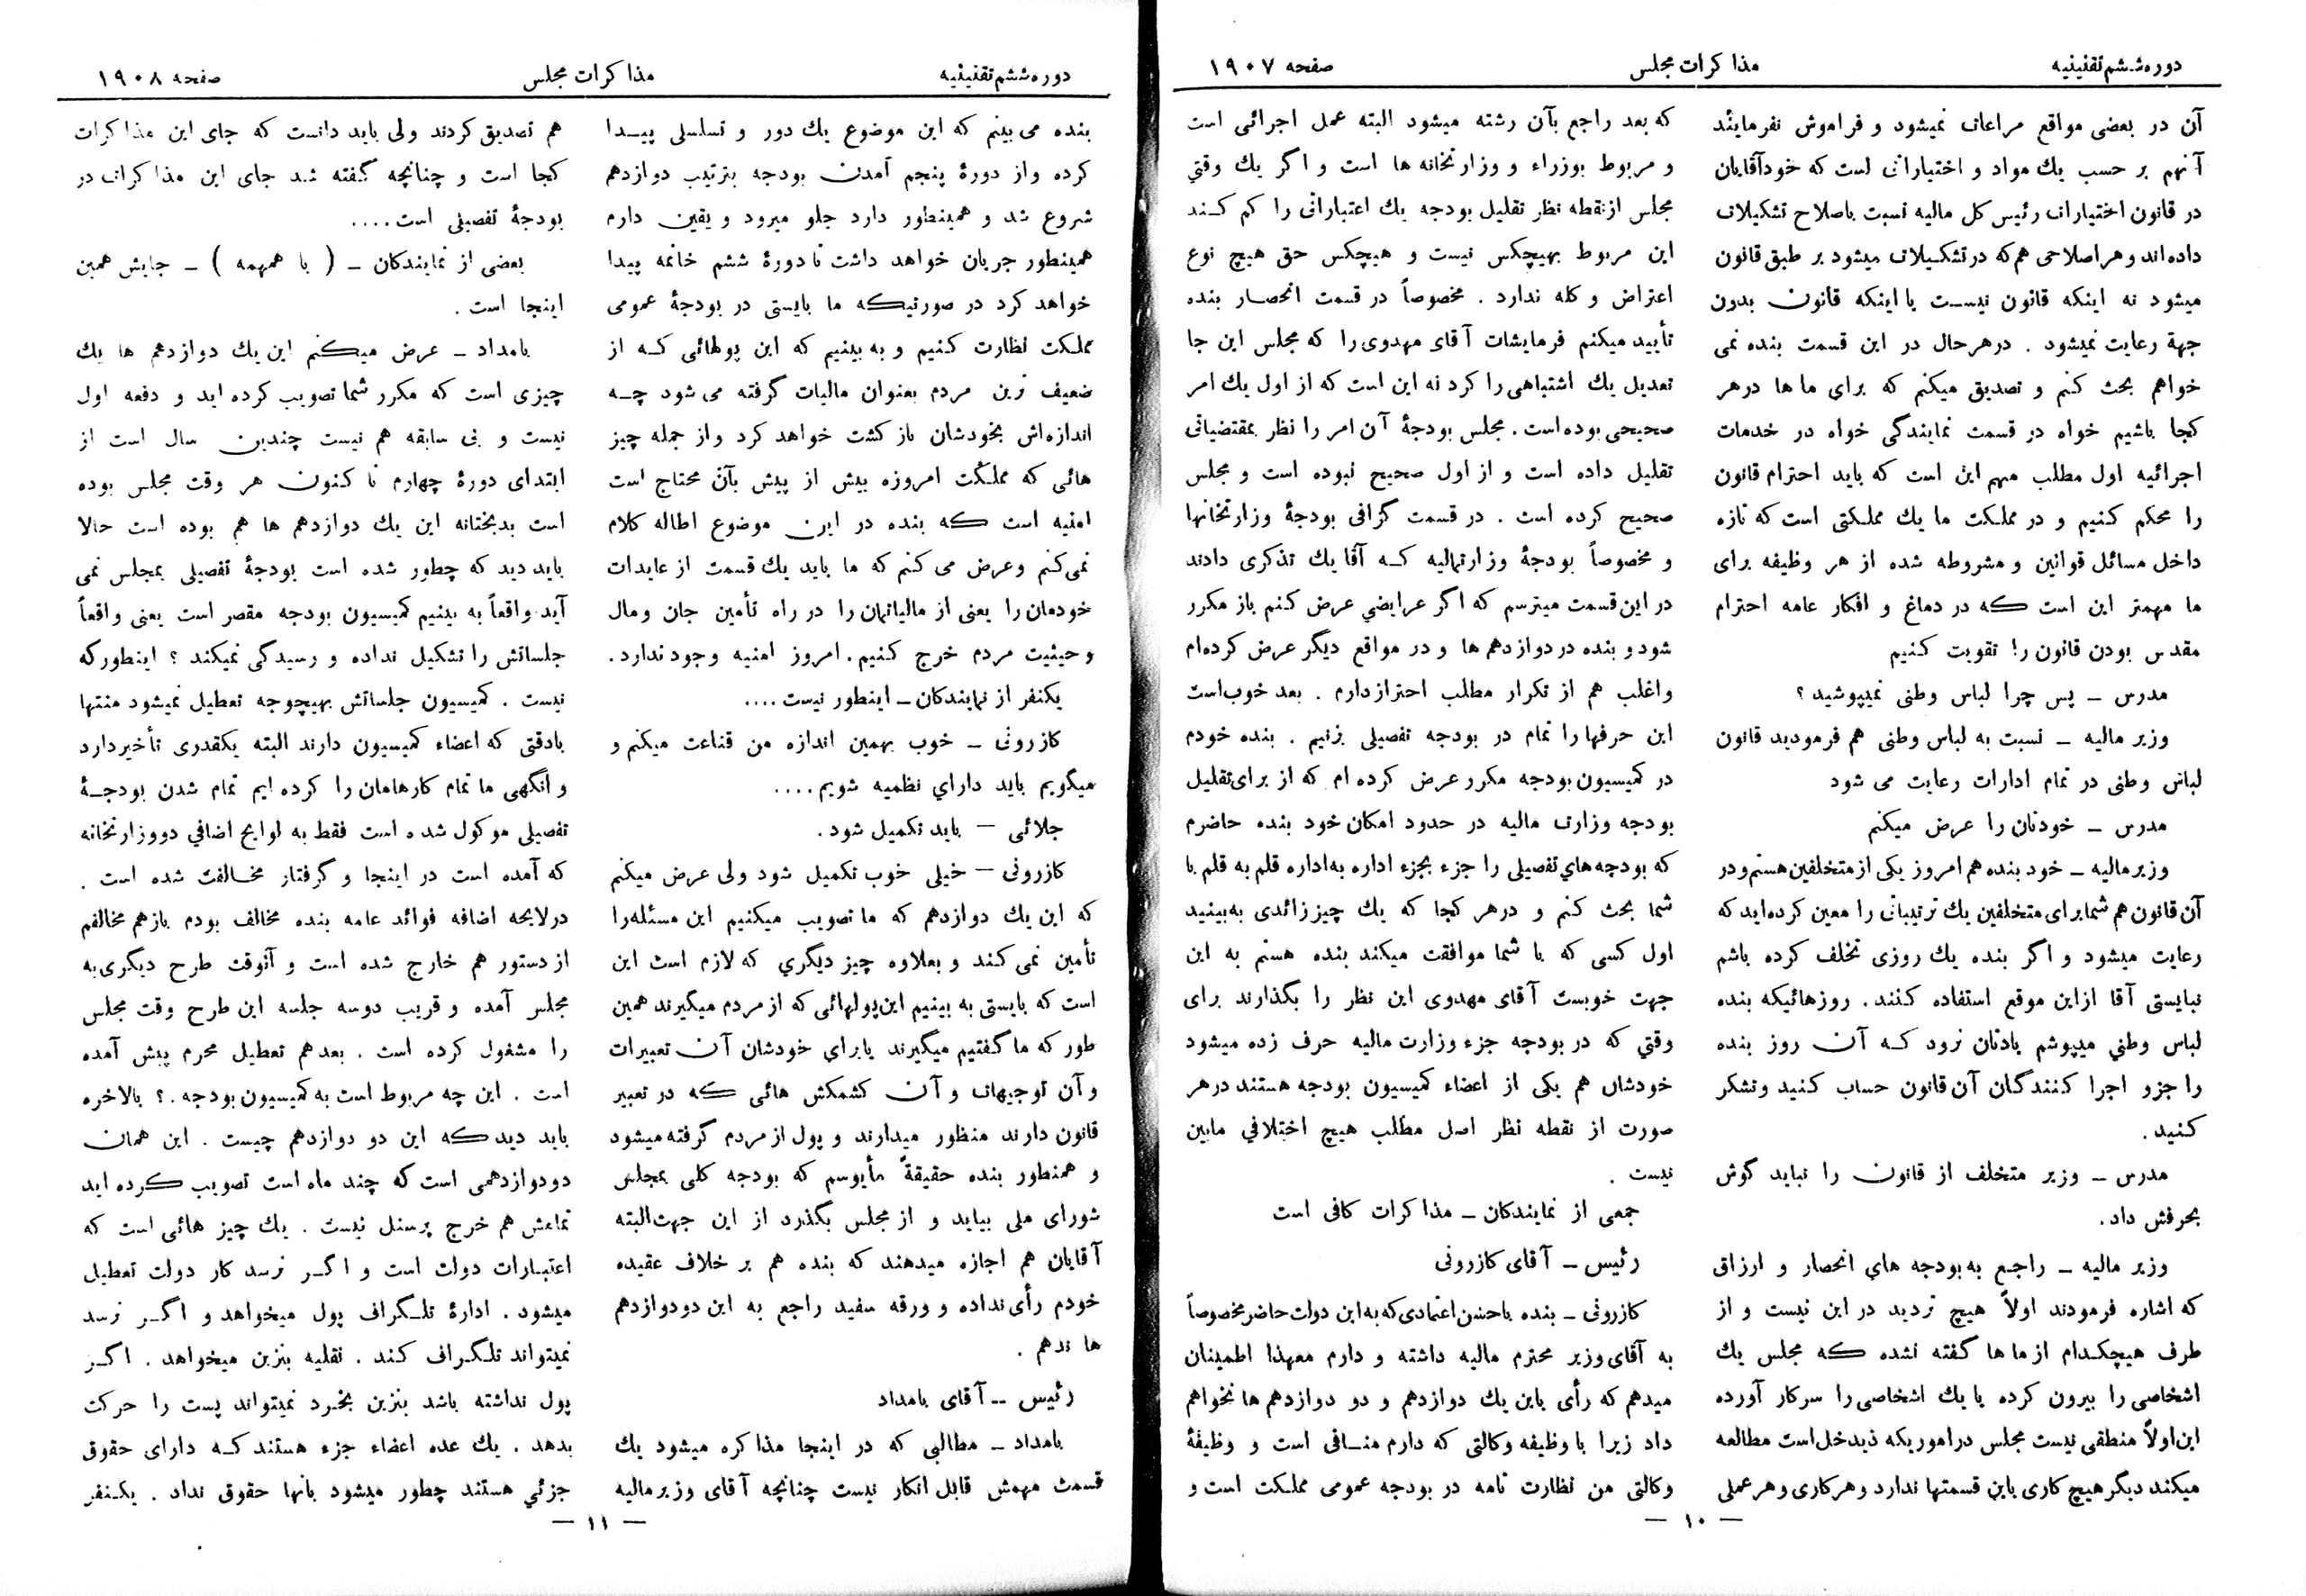 دوره ششم تقنینیه
مذاکرات مجلس
صفحه ۱۹۰۷
آن در بعضی مواقع مراعات نمیشود و فراموش نفرمایند
آنهم بر حسب یك مواد و اختیاراتی است که خود آقایان
در قانون اختیارات رئیس کل مالیه نسبت باصلاح تشکیلات
داده‌اند و هر اصلاحی هم که در تشکیلات میشود بر طبق قانون
میشود نه اینکه قانون نیست یا اینکه قانون بدون
جهة رعایت نمیشود . در هر حال در این قسمت بنده نمی
خواهم بحث کنم و تصدیق میکنم که برای ما ها در هر
کجا باشیم خواه در قسمت نمایندگی خواه در خدمات
اجرائیه اول مطلب مهم این است که باید احترام قانون
را محکم کنیم و در مملکت ما یك مملکتی است که تازه
داخل مسائل قوانین و مشروطه شده از هر وظیفه برای
ما مهمتر این است که در دماغ و افکار عامه احترام
مقدس بودن قانون را تقویت کنیم
مدرس ـ پس چرا لباس وطنی نمیپوشید ؟
وزیر مالیه ـ نسبت به لباس وطنی هم فرمودید قانون
لباس وطنی در تمام ادارات رعایت می شود
مدرس ـ خودتان را عرض میکنم
وزیر مالیه ـ خود بنده هم امروز یکی از متخلفین هستم و در
آن قانون هم شما برای متخلفین یك ترتیباتی را معین کرده‌اید که
رعایت میشود و اگر بنده یك روزی تخلف کرده باشم
نبایستی آقا از این موقع استفاده کنند . روزهائیکه بنده
لباس وطني میپوشم یادتان نرود که آن روز بنده
را جزو اجرا کنندگان آن قانون حساب کنید و تشکر
کنید .
مدرس ـ وزیر متخلف از قانون را نباید گوش
بحرفش داد .
وزیر مالیه ـ راجع به بودجه هاي انحصار و ارزاق
که اشاره فرمودند اولاً هیچ تردید در این نیست و از
طرف هیچکدام از ماها گفته نشده که مجلس یك
اشخاصی را بیرون کرده یا یك اشخاصی را سرکار آورده
این اولاً منطقی نیست مجلس در اموریکه ذیدخل است مطالعه
میکند دیگر هیچ کاری باین قسمتها ندارد و هر کاری و هر عملی
که بعد راجع بآن رشته میشود البته عمل اجرائی است
و مربوط بوزراء و وزارتخانه ها است و اگر یك وقتي
مجلس از نقطه نظر تقلیل بودجه یك اعتباراتی را کم کند
این مربوط بهیچکس نیست و هیچکس حق هیچ نوع
اعتراض و کله ندارد . مخصوصاً در قسمت انحصار بنده
تأیید میکنم فرمایشات آقای مهدوی را که مجلس این جا
تعدیل یك اشتباهی را کرد نه این است که از اول یك امر
صحیحی بوده است . مجلس بودجهٔ آن امر را نظر بمقتضیاتی
تقلیل داده است و از اول صحیح نبوده است و مجلس
صحیح کرده است . در قسمت گزافی بودجهٔ وزارتخانها
و مخصوصاً بودجهٔ وزارتمالیه که آقا یك تذکری دادند
در این قسمت میترسم که اگر عرایضي عرض کنم باز مکرر
شود و بنده در دوازدهم ها و در مواقع دیگر عرض کرده‌ام
و اغلب هم از تکرار مطلب احتراز دارم . بعد خوب است
این حرفها را تمام در بودجه تفصیلی بزنیم . بنده خودم
در کمیسیون بودجه مکرر عرض کرده ام که از برای تقلیل
بودجه وزارت مالیه در حدود امکان خود بنده حاضرم
که بودجه هاي تفصیلی را جزء بجزء اداره به اداره قلم به قلم با
شما بحث کنم و در هر کجا که یك چیز زائدی به بینید
اول کسی که با شما موافقت میکند بنده هستم به این
جهت خوبست آقای مهدوی این نظر را بگذارند برای
وقتي که در بودجه جزء وزارت مالیه حرف زده میشود
خودشان هم یکی از اعضاء کمیسیون بودجه هستند در هر
صورت از نقطه نظر اصل مطلب هیچ اختلافي مابین
نیست .
جمعی از نمایندگان ـ مذاکرات کافی است
رئیس ـ آقای کازرونی
کازرونی ـ بنده با حسن اعتمادی که به این دولت حاضر مخصوصاً
به آقای وزیر محترم مالیه داشته و دارم معهذا اطمینان
میدهم که رأی باین یك دوازدهم و دو دوازدهم ها نخواهم
داد زیرا با وظیفه وکالتی که دارم منافی است و وظیفهٔ
وکالتی من نظارت تامه در بودجه عمومی مملکت است و
ـ ۱۰ ـ
دوره ششم تقنینیه
مذاکرات مجلس
صفحه ۱۹۰۸
بنده می‌بینم که این موضوع یك دور و تسلسلی پیدا
کرده و از دورهٔ پنجم آمدن بودجه بترتیب دوازدهم
شروع شد و همینطور دارد جلو میرود و یقین دارم
همینطور جریان خواهد داشت تا دورهٔ ششم خاتمه پیدا
خواهد کرد در صورتیکه ما بایستی در بودجهٔ عمومی
مملکت نظارت کنیم و به بینیم که این پولهائی که از
ضعیف ترین مردم بعنوان مالیات گرفته می شود چه
اندازه‌اش بخودشان بازگشت خواهد کرد و از جمله چیز
هائی که مملکت امروزه بیش از پیش بآن محتاج است
امنیه است که بنده در این موضوع اطاله کلام
نمی‌کنم و عرض می کنم که ما باید یك قسمت از عایدات
خودمان را یعنی از مالیاتمان را در راه تأمین جان و مال
و حیثیت مردم خرج کنیم . امروز امنیه وجود ندارد .
یکنفر از نمایندکان ـ اینطور نیست ....
کازرونی ـ خوب بهمین اندازه من قناعت میکنم و
میگویم باید داراي نظمیه شویم ....
جلائی ـ باید تکمیل شود .
کازرونی ـ خیلی خوب تکمیل شود ولی عرض میکنم
که این یك دوازدهم که ما تصویب میکنیم این مسئله را
تأمین نمی کند و بعلاوه چیز دیگري که لازم است این
است که بایستی به بینیم این پولهائی که از مردم میگیرند همین
طور که ما گفتیم میگیرند یا براي خودشان آن تعبیرات
و آن توجیهات و آن کشمکش هائی که در تعبیر
قانون دارند منظور میدارند و پول از مردم گرفته میشود
و همنطور بنده حقیقةً مأیوسم که بودجه کلی بمجلس
شورای ملی بیاید و از مجلس بگذرد از این جهت البته
آقایان هم اجازه میدهند که بنده هم بر خلاف عقیده
خودم رأی نداده و ورقه سفید راجع به این دو دوازدهم
ها ندهم .
رئیس ـ آقای یامداد
یامداد ـ مطالبی که در اینجا مذاکره میشود یك
قسمت مهمش قابل انکار نیست چنانچه آقای وزیر مالیه
هم تصدیق کردند ولی باید دانست که جای این مذاکرات
کجا است و چنانچه گفته شد جای این مذاکرات در
بودجهٔ تفصیلی است ....
بعضی از نمایندکان ـ ( با همهمه ) ـ جایش همین
اینجا است .
یامداد ـ عرض میکنم این یك دوازدهم ها یك
چیزی است که مکرر شما تصویب کرده اید و دفعه اول
نیست و بی سابقه هم نیست چندین سال است از
ابتدای دورهٔ چهارم تا کنون هر وقت مجلس بوده
است بدبختانه این یك دوازدهم ها هم بوده است حالا
باید دید که چطور شده است بودجهٔ تفصیلی بمجلس نمی
آید واقعاً به بینیم کمیسیون بودجه مقصر است یعنی واقعاً
جلساتش را تشکیل نداده و رسیدگی نمیکند ؟ اینطور که
نیست . کمیسیون جلساتش بهیچوجه تعطیل نمیشود منتها
بادقتی که اعضاء کمیسیون دارند البته یکقدری تأخیر دارد
و انگهی ما تمام کارهامان را کرده ایم تمام شدن بودجهٔ
تفصیلی موکول شده است فقط به لوایح اضافي دو وزارتخانه
که آمده است در اینجا و گرفتار مخالفت شده است .
در لایحه اضافه فوائد عامه بنده مخالف بودم باز هم مخالفم
از دستور هم خارج شده است و آنوقت طرح دیگری به
مجلس آمده و قریب دوسه جلسه این طرح وقت مجلس
را مشغول کرده است . بعد هم تعطیل محرم پیش آمده
است . این چه مربوط است به کمیسیون بودجه . ؟ بالاخره
باید دید که این دو دوازدهم چیست . این همان
دو دوازدهمی است که چند ماه است تصویب کرده اید
تمامش هم خرج پرسنل نیست . یك چیز هائی است که
اعتبارات دولت است و اگر نرسد کار دولت تعطیل
میشود . ادارهٔ تلگراف پول میخواهد و اگر نرسد
نمیتواند تلگراف کند . نقلیه بنزین میخواهد . اگر
پول نداشته باشد بنزین بخرد نمیتواند پست را حرکت
بدهد . یك عده اعضاء جزء هستند که دارای حقوق
جزئي هستند چطور میشود بانها حقوق نداد . یکنفر
ـ ۱۱ ـ